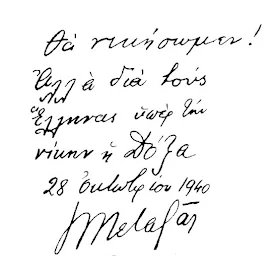 Θὰ νικήσωμεν!
Ἀλλὰ διὰ τοὺς
Ἕλληνας ὑπὲρ τὴν
νίκην ἡ Δόξα
28 ὀκτωβρίου 1940
Ι Μεταξᾶς